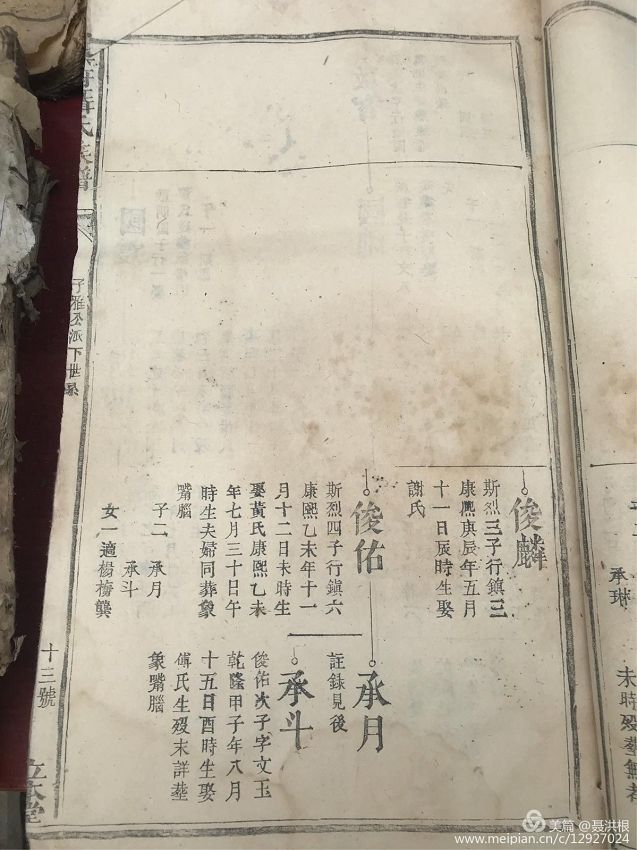 承琳
未時歿塟無考
俊麟
斯烈三子行鎮三
康熙庚辰年五月
十一日辰時生娶
謝氏
俊佑
斯烈四子行鎮六
康熙乙未年十一
月十二日未時生
娶黃氏康熙乙未
年七月三十日午
時生夫婦同葬象
嘴腦
子二 承月
承斗
女一適楊橋龔
承月
註録見後
承斗
俊佑次子字文玉
乾隆甲子年八月
十五日酉時生娶
傅氏生歿未詳塟
象嘴腦
氏族譜
子雅公派下世系
十三號
立本堂
美篇 @聂洪根
www.meipian.cn/c/12927024